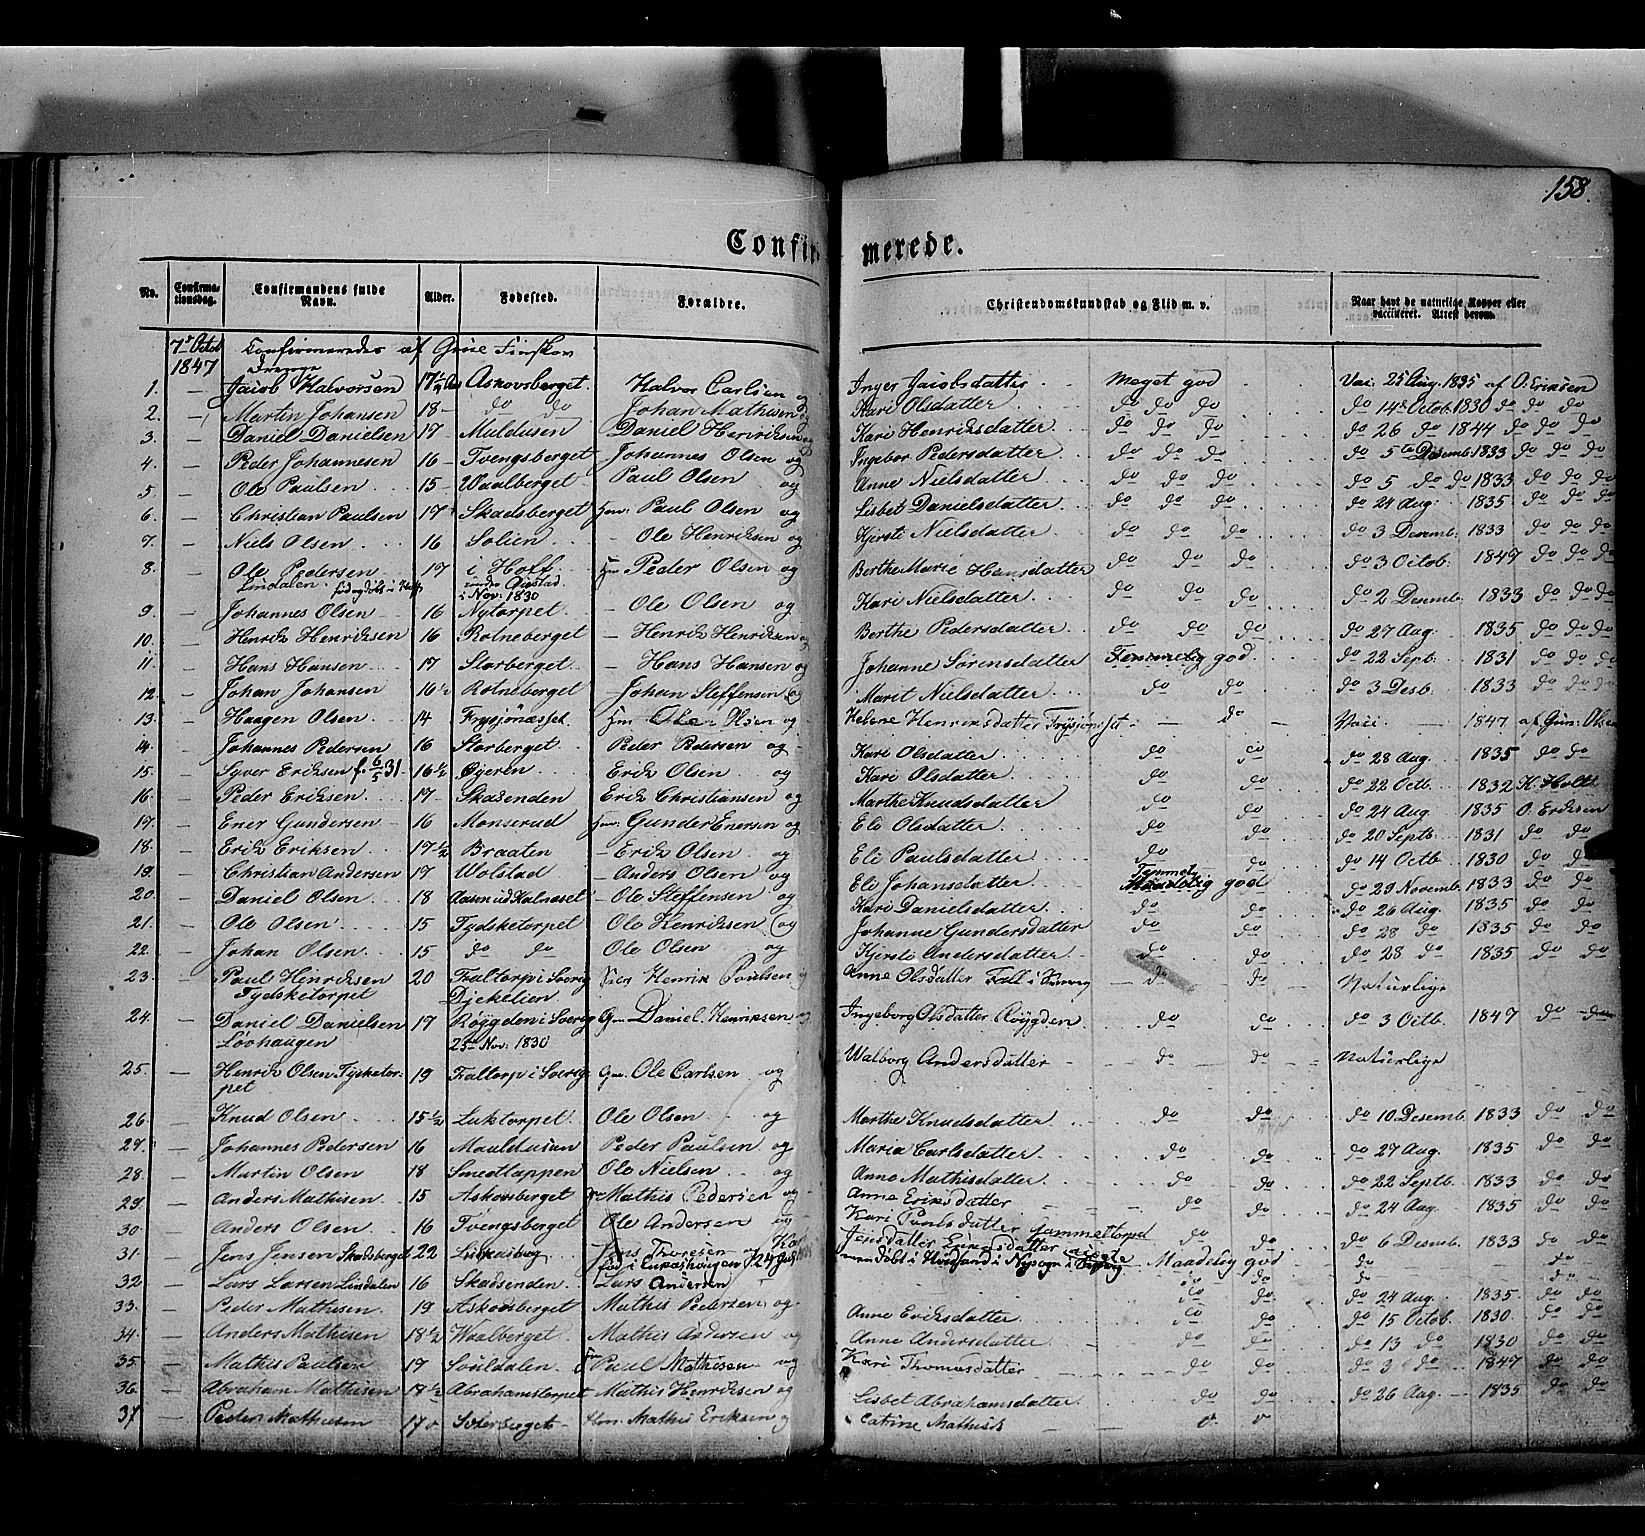 158.
Confirmerede.
No. Confirmationsdag. Confirmandens fulde Navn. Alder. Fødested. Forældre. Christendomskundskab og Flid m. v. Naar havt de naturlige Kopper eller vaccineret. Attest derom.
7de Octob 1847 Confirmeredes af Grue Finskov
Drenge
1. — Jacob Halvorsen 17½ Aar Askovsberget. Halvor Carlsen og Inger Jacobsdatter Meget god Vac. 25 Aug. 1835 af O. Eriksen
2. — Martin Johansen 18 — do do Johan Mathisen og Kari Olsdatter do do do do 14de Octob. 1830 do do do
3. — Daniel Danielsen 17 — Muldusen Daniel Henriksen og Kari Henriksdatter do do do do 26 do 1844 do do do
4. — Peder Johannesen 16 — Tvengsberget Johannes Olsen og Ingebor Pedersdatter do do do do 5te Desemb. 1833 do do do
5. — Ole Paulsen 15 — Waalberget Paul Olsen og Anne Nielsdatter do do do do 5 do do 1833 do do do
6. — Christian Paulsen 17 Skadsberget Hm: Paul Olsen og Lisbet Danielsdatter do do do do 24 Aug. 1835 do do do
7. — Niels Olsen 16 Solien — Ole Henriksen og Kjersti Nielsdatter do do do do 3 Desemb: 1833 do do do
8. — Ole Pedersen 17 i Hoff Hm Peder Olsen og Berthe Marie Hansdatter do do do do 3 Octob. 1847 do do do
Lindalen
i Nov: 1830
9. — Johannes Olsen 16 Nytorpet — Ole Olsen og Kari Nielsdatter do do do do 2 Desemb: 1833 do do do
10. — Henrik Henriksen 16 Rotneberget — Henrik Henriksen og Berthe Pedersdatter do do do do 27 Aug. 1835 do do do
11. — Hans Hansen 17 Storberget — Hans Hansen og Johanne Sørensdatter Temmelig god do 22 Sept. 1831 do do do
12. — Johan Johansen 16½ Rotneberget — Johan Steffensen og Marit Nielsdatter do do do 3 Desb. 1833 do do do
13. — Haagen Olsen 14 Frysjønæsset Hm Ole Olsen og Helene Henriksdatter Frysjønæsset — do — Vacc: — 1847 af Gun: Olsen
14. — Johannes Pedersen 16 Storberget Peder Pedersen og Kari Olsdatter do do do 28 Aug. 1835 do do
15. — Syver Eriksen f. 6/5 31 16½ Øyeren Erik Olsen og Kari Olsdatter do do do 22 Octb. 1832 K. Holth
16. — Peder Eriksen 17 — Skadsenden Erik Christiansen og Marthe Knudsdatter do do do 24 Aug. 1835 O. Eriksen
17. — Ener Gundersen 16 Monserud Hm: Gunder Enersen og Eli Olsdatter do do do 20 Septb. 1831 do do
18. — Erik Eriksen 17½ Braaten — Erik Olsen og Eli Paulsdatter do do do 14 Octb. 1830 do do
19. — Christian Andersen 17 Wolstad — Anders Olsen og Eli Johansdatter Temmelig god do 29 Novemb. 1833 do do
20. — Daniel Olsen 18 — Ole Steffensen og Kari Danielsdatter do do do 26 Aug. 1835 do do
21. — Ole Olsen 15 Tydsketorpet Ole Henriksen og Johanne Gundersdatter do do do 28 do 1835 do do
22. — Johan Olsen 15 do do Ole Olsen og Kjersti Andersdatter do do do 28 do 1835 do do
23. — Paul Hinriksen 20 Faltorp i Sverig Henrik Paulsen Anne Olsdatter — do — do — Naturlige
Tydsketorpet
24. — Daniel Danielsen 17 Røygden i Sverig Gm Daniel Henriksen og Ingeborg Olsdatter Røygden do do do 3 Octb. 1847 do do
Lövhaugen 23de Nov: 1830
25. — Henrik Olsen Tysketorpet 19 Faltorp i Sverig Gm. Ole Carlsen og Walborg Andersdatter — do do — Naturlige
26. — Knud Olsen 15½ Luktorpet Ole Olsen og Marthe Knudsdatter do do do 10 Desemb. 1833 do do
27. — Johannes Pedersen 16 Mouldusen Peder Paulsen og Maria Carlsdatter do do do 27 Aug. 1835 do do
28. — Martin Olsen 18 Smedtappen Ole Nielsen og Anne Mathisdatter do do do 22 Septb. 1833 do do
29. — Anders Mathisen 15 Askovsberget Mathis Pedersen og Anne Eriksdatter do do do 24 Aug. 1835 do do
30. — Anders Olsen 16 Tvengsberget Ole Andersen og Kari Paulsdatter do do do 6 Desmb. 1833 do do
31. — Jens Jensen Skadsberget 22 Jens Thoresen Maadelig god do do
32. — Lars Larsen Lindalen 16 Skadsenden Lars Andersen do do do 24 Aug. 1835 do do
33. — Peder Mathisen 19 Askovsberget Mathis Pedersen og Anne Eriksdatter do do do 15 Octob. 1830 do do
34. — Anders Mathisen 18½ Waalberget Mathis Andersen og Anne Andersdatter do do do 13 do 1830 do do
35. — Mathis Paulsen 17 Souldalen Paul Mathisen og Kari Thomasdatter do do do 3 do 1847 do do
36. — Abraham Mathisen 18½ Abrahamstorpet Mathis Henriksen og Lisbet Abrahamsdatter do do do 26 Aug. 1835 do do
37. — Peder Mathisen 17 Mathis Eriksen Catrine Mathisd.